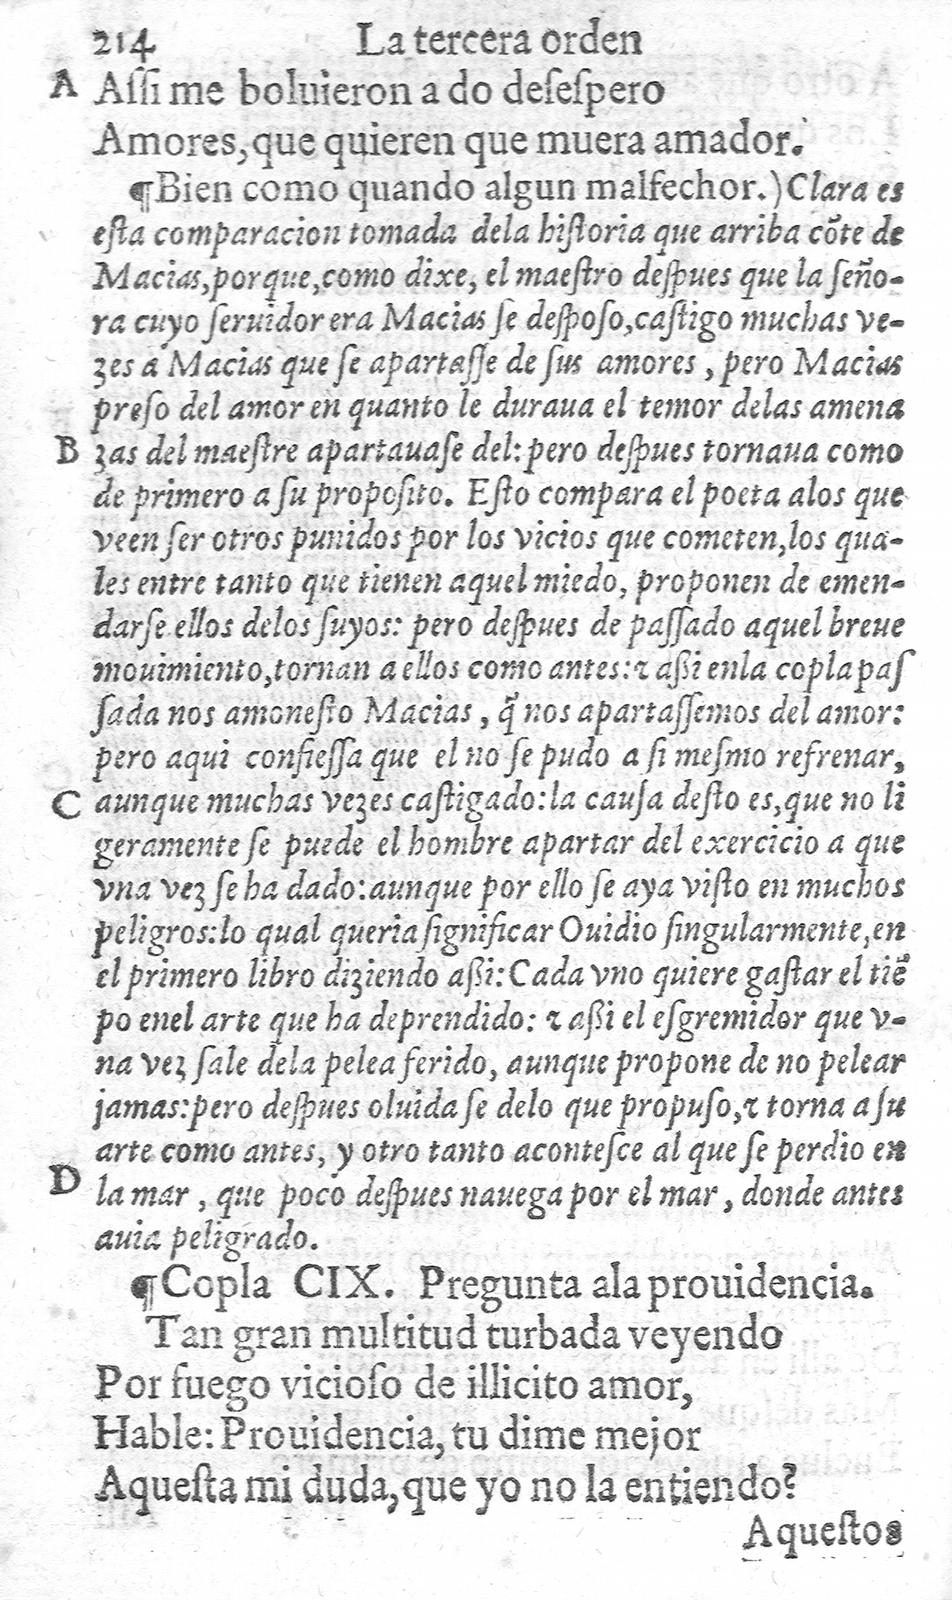 214 La tercera orden
A Aſſi me boluieron a do deſeſpero
Amores, que quieren que muera amador.
¶Bien como quando algun malfechor.) Clara es
eſta comparacion tomada dela hiſtoria que arriba cõte de
Macias, porque, como dixe, el maeſtro deſpues que la ſeño-
ra cuyo ſeruidor era Macias ſe deſpoſo, caſtigo muchas ve-
zes a Macias que ſe apartaſſe de ſus amores, pero Macias
preſo del amor en quanto le duraua el temor delas amena
B zas del maeſtre apartauaſe del: pero deſpues tornaua como
de primero a ſu propoſito. Eſto compara el poeta alos que
veen ſer otros punidos por los vicios que cometen, los qua-
les entre tanto que tienen aquel miedo, proponen de emen-
darſe ellos delos ſuyos: pero deſpues de paſſado aquel breue
mouimiento, tornan a ellos como antes: ⁊ aßi enla copla paſ
ſada nos amoneſto Macias, q̃ nos apartaſſemos del amor:
pero aqui confieſſa que el no ſe pudo a ſi meſmo refrenar,
C aunque muchas vezes caſtigado: la cauſa deſto es, que no li
geramente ſe puede el hombre apartar del exercicio a que
vna vez ſe ha dado: aunque por ello ſe aya viſto en muchos
peligros: lo qual queria ſignificar Ouidio ſingularmente, en
el primero libro diziendo aßi: Cada vno quiere gaſtar el tiẽ
po enel arte que ha deprendido: ⁊ aßi el eſgremidor que v-
na vez ſale dela pelea ferido, aunque propone de no pelear
jamas: pero deſpues oluida ſe delo que propuſo, ⁊ torna a ſu
arte como antes, y otro tanto aconteſce al que ſe perdio en
D la mar, que poco deſpues nauega por el mar, donde antes
auia peligrado.
¶Copla CIX. Pregunta ala prouidencia.
Tan gran multitud turbada veyendo
Por fuego vicioſo de illicito amor,
Hable: Prouidencia, tu dime mejor
Aqueſta mi duda, que yo no la entiendo?
Aqueſtos